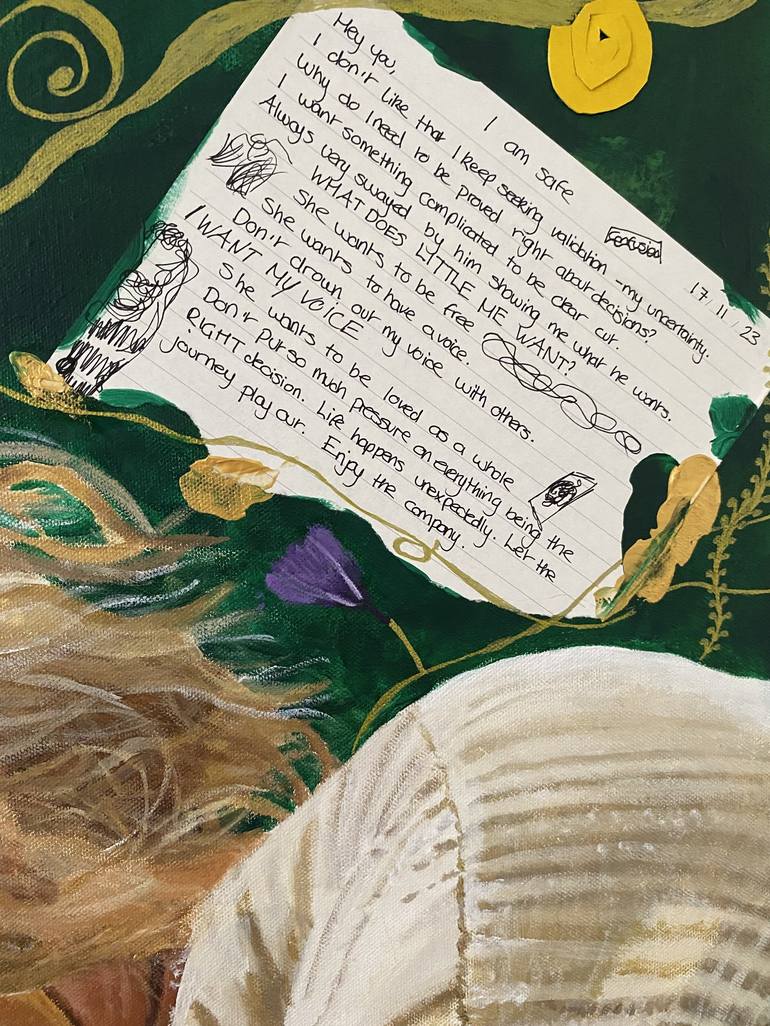 I am safe
17/11/23
Hey you,
I don't like that I keep seeking validation - my uncertainty.
Why do I need to be proved right about decisions?
I want something complicated to be clear cut.
Always very swayed by him showing me what he wants.
WHAT DOES LITTLE ME WANT?
She wants to be free
She wants to have a voice.
Don't drown out my voice with others.
I WANT MY VOICE
She wants to be loved as a whole
Don't put so much pressure on everything being the
RIGHT decision. Life happens unexpectedly. Let the
journey play out. Enjoy the company.